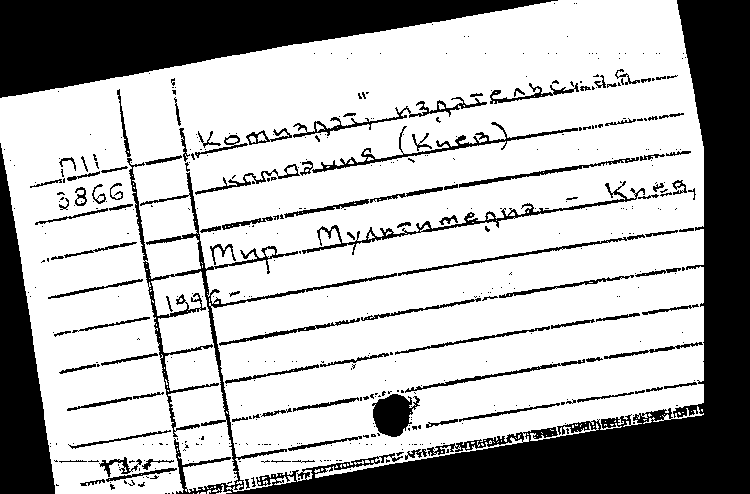 „Комиздат“, издательская
П11 компания (Киев)
3866
Мир Мультимедиа. – Киев,
1996–